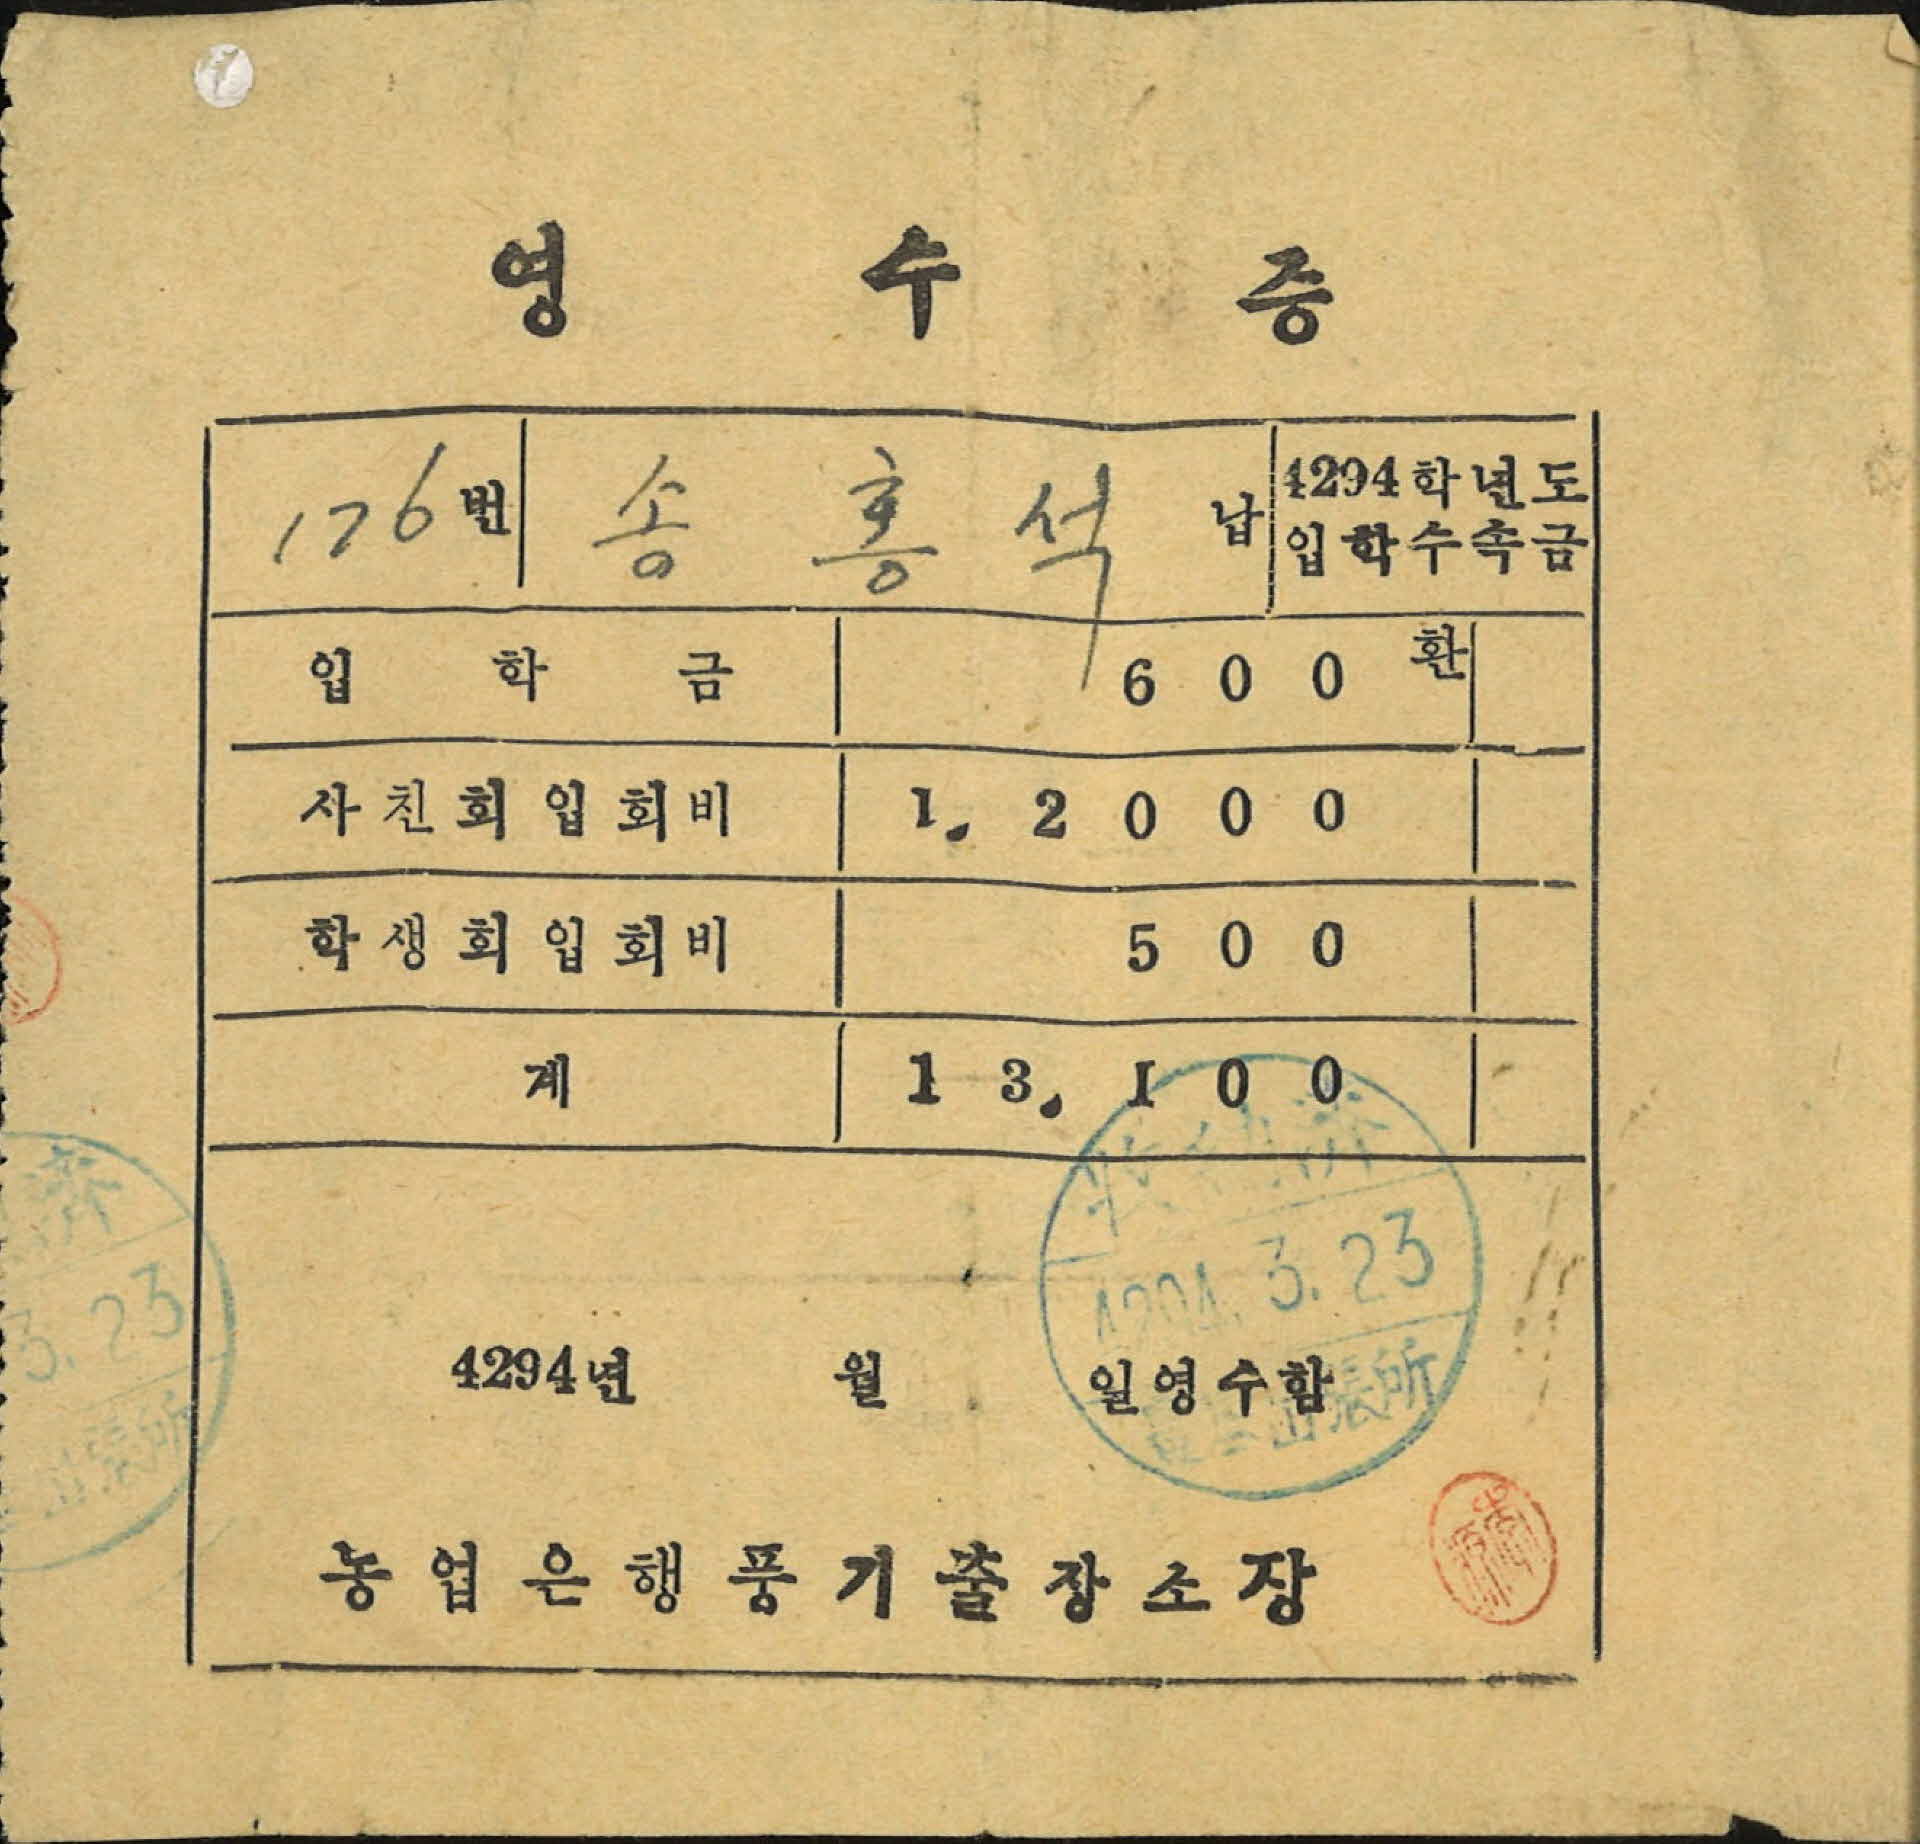 영 수 증
176번 송 홍 석 납 4294학년도
입학수속금
입 학 금 600환
사친회입회비 1.2000
학생회입회비 500
계 13.100
收納濟
4294. 3. 23
出張所
4294년 월 일영수함
농업은행풍기출장소장
濟
3. 23
出張所